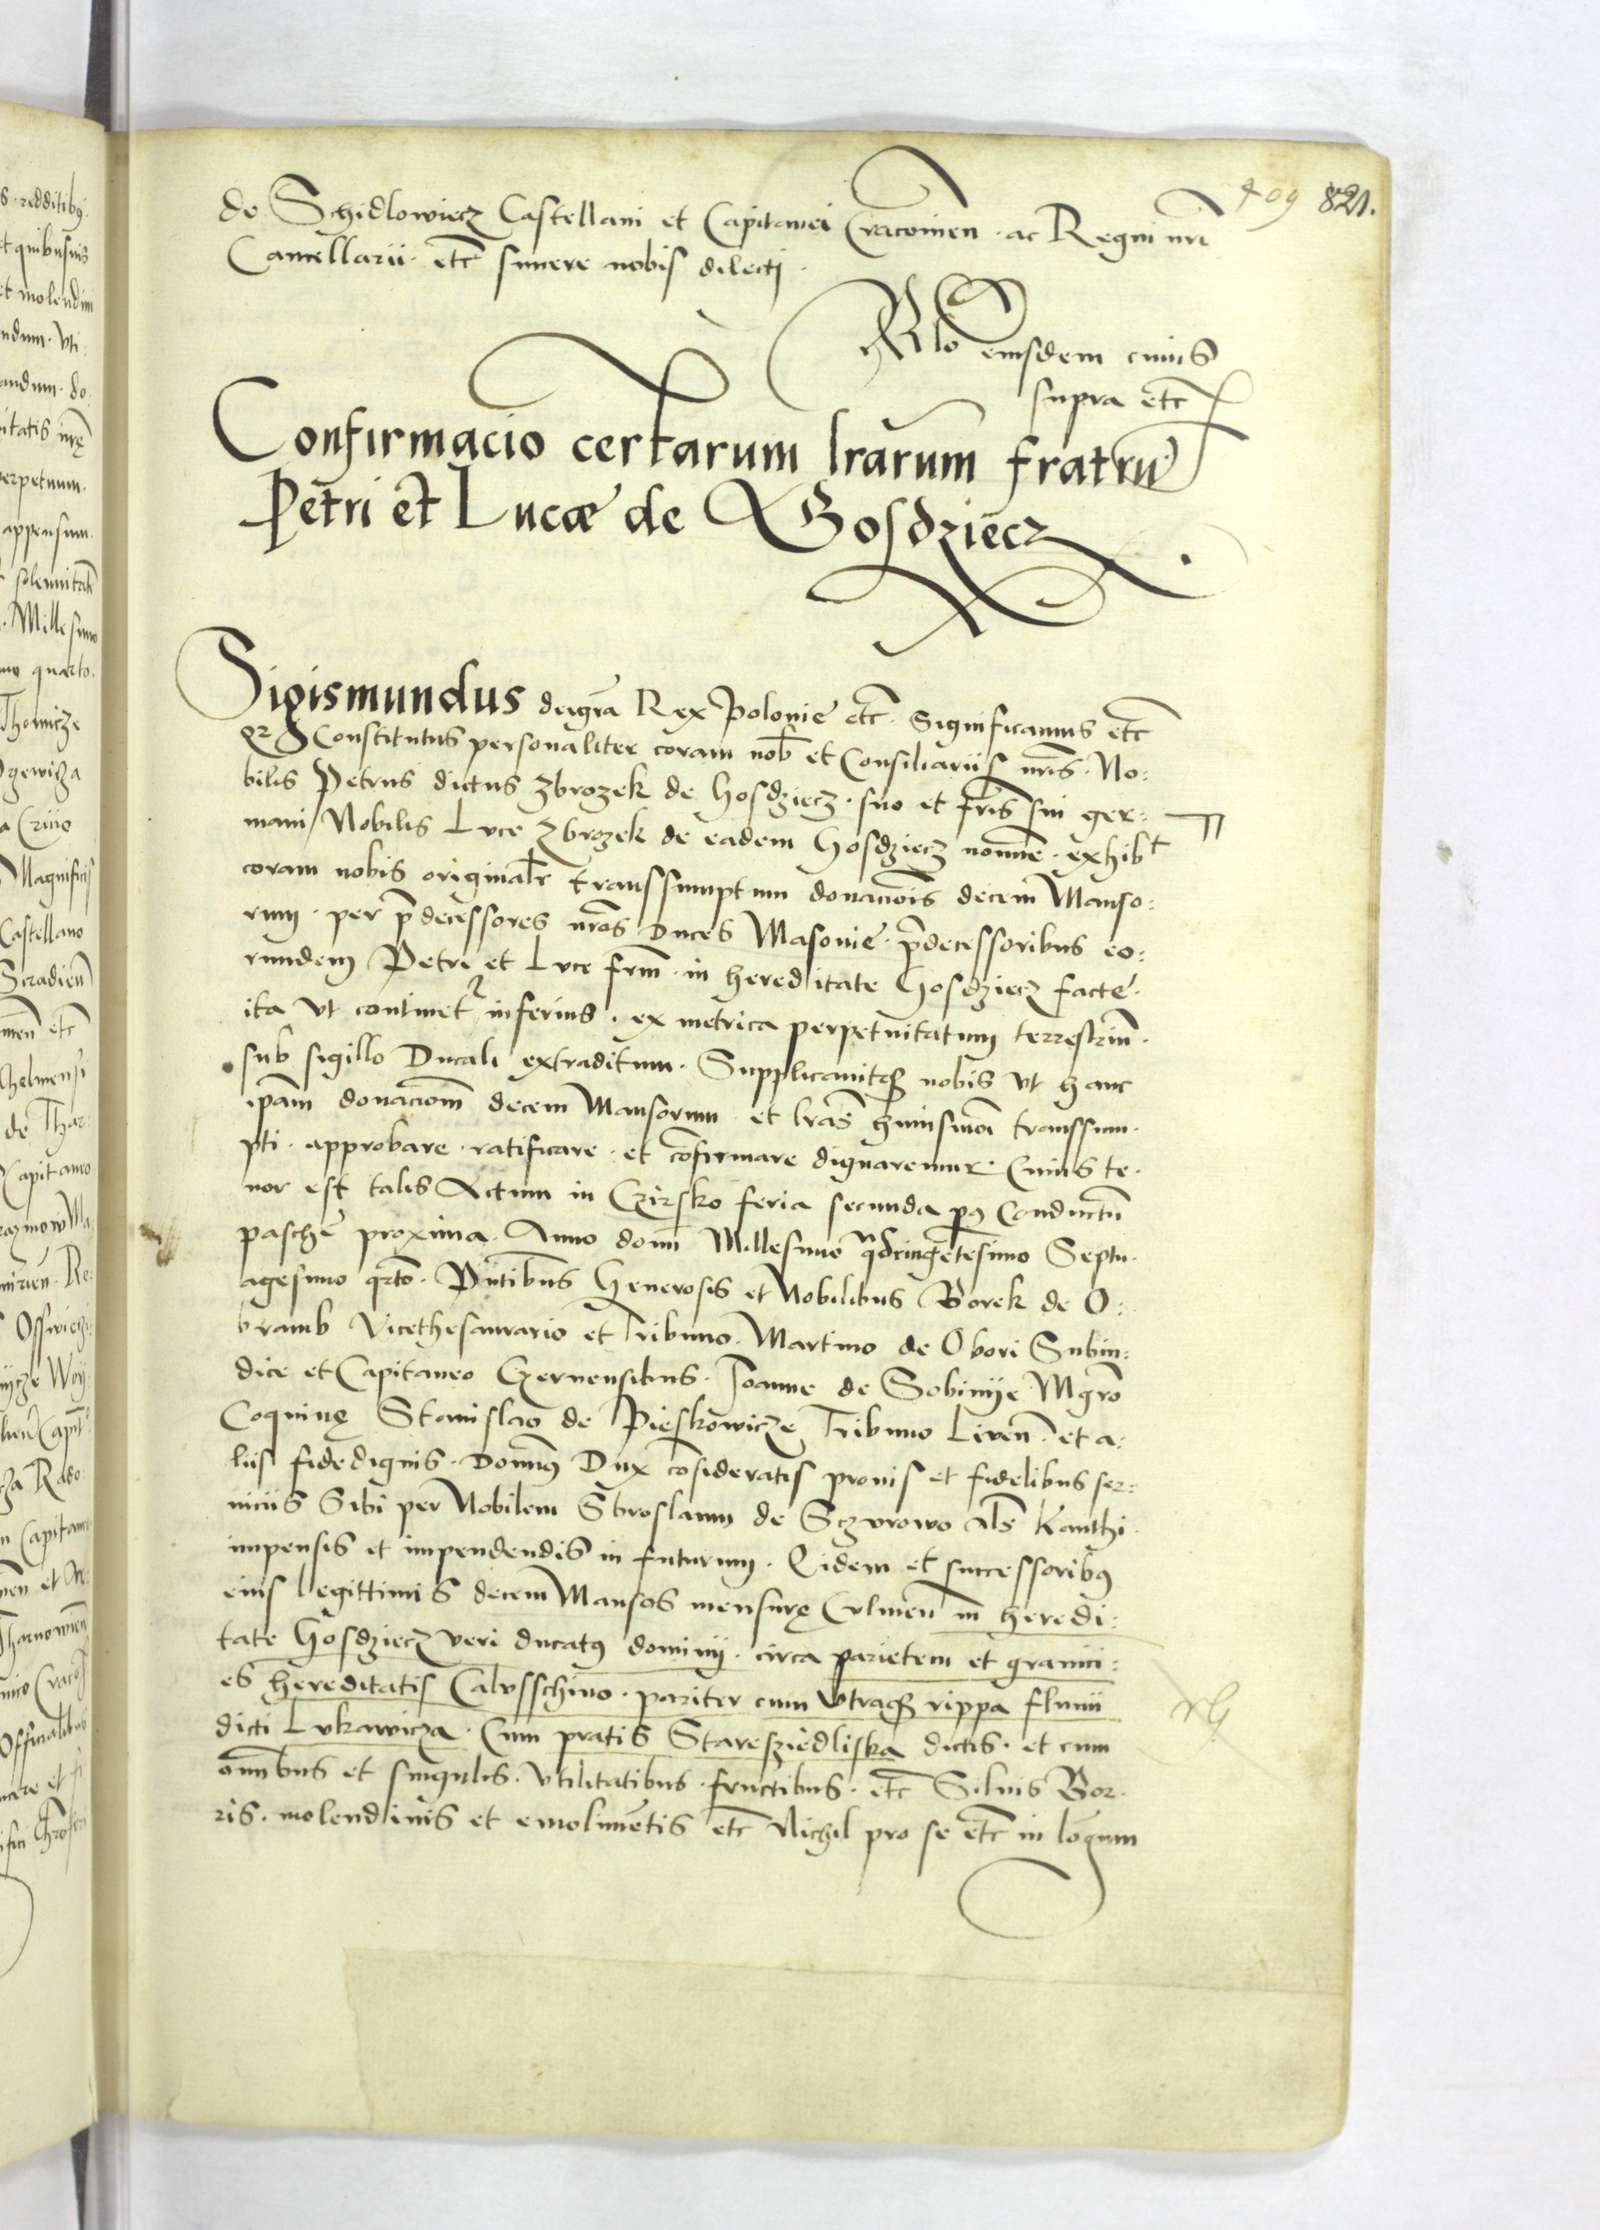 409 821.
de Schidlowiecz Castellani et Capitanei Cracovien · ac Regni nri
Cancellarii · etc sincere nobis dilecti ·
Rlo eiusdem cuius
supra etc
Confirmacio certarum lrarum fratru
Petri et Lucæ de Gosdziecz
Sigismundus dei gra Rex Polonie etc · Significamus etc
qz Constitutus personaliter coram nob et Consiliariis nris · No:
bilis Petrus dictus Zbrozek de Gosdziecz · suo et fris sui ger:
mani Nobilis Luce Zbrozek de eadem Gosdziecz nomine · exhibt
coram nobis originale transsumptum donacionis decem Manso:
rum · per predecessores nros Duces Masovie · predecessoribus eo:
rundem Petri et Luce frm · in hereditate Gosdziecz facte ·
ita ut continetr inferius · ex metrica perpetuitatum terrestrium ·
sub sigillo Ducali extraditum · Supplicavitque nobis ut hanc
ipam donacionem decem Mansorum et lras huiusmodi transsum·
pti · approbare · ratificare · et confirmare dignaremur · Cuius te·
nor est talis Actum in Czirsko feria secunda pus Conductum
pasche proxima · Anno domi Millesimo quadringetesimo Septu·
agesimo qrto · Pntibus Generosis et Nobilibus Borek de O:
bramb Vicethesaurario et Tribuno · Martino de Obori Subiu:
dice et Capitaneo Czernensibus · Joanne de Sobinye Mgro
Coquinę Stanislao de Pieskowicze Tribuno Liven · et a:
liis fidedignis · Dominus Dux cosideratis provis et fidelibus ser:
viciis Sibi per Nobilem Stroslaum de Sczvrowo als Kanthi ·
impensis et impendendis in futurum · Eidem et successoribus
eius legittimis decem Mansos mensurę Culmen in heredi:
tate Gosdziecz veri ducatus dominii · circa parietem et granici:
es hereditatis Calvsschino · pariter cum utraque rippa fluvii
dicti Lukawicza · Cum pratis Staresziedliska dictis · et cum
omnibus et singulis · utilitatibus · fructibus · etc Silvis Bor·
ris · molendinis et emolumetis etc Nichil pro se etc in logum